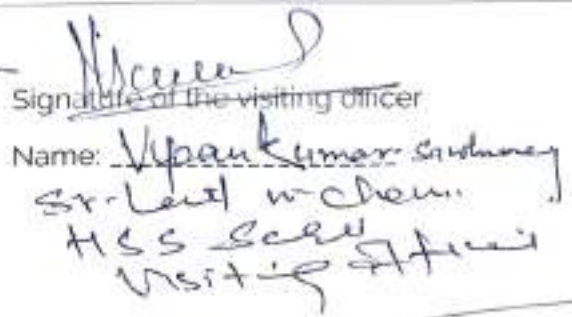 Signature of the visiting officer
Name: Vipan Kumar
Sr. Lect in Chem.
HSS
Visiting Officer